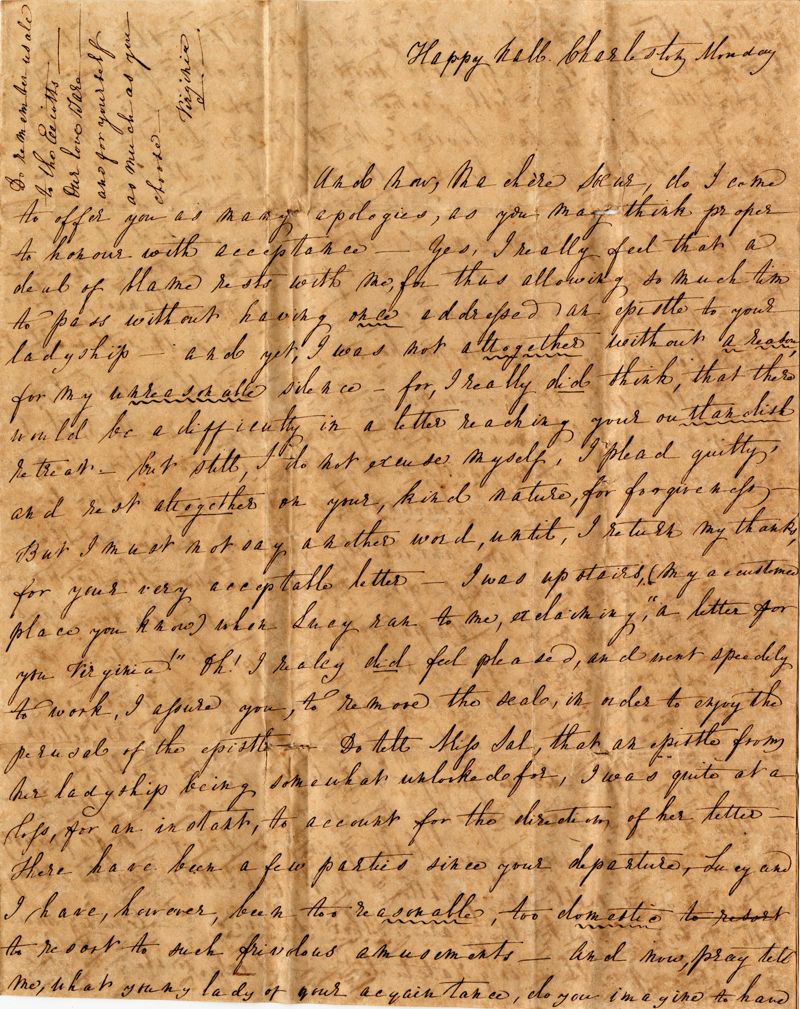 Happy hall. Charleston, Monday
And now, Ma chère Sœur, do I come
to offer you as many apologies, as you may think proper
to honour with acceptance — Yes, I really feel that a
deal of blame rests with me, for thus allowing so much tim
to pass without having once addressed an epistle to your
ladyship — and yet, I was not altogether without a reason,
for my unreasonable silence — for, I really did think, that there
would be a difficulty in a letter reaching your outlandish
retreat — but still, I do not excuse myself, I "plead guilty,"
and rest altogether on your, kind nature, for forgiveness —
But I must not say another word, until, I return my thanks,
for your very acceptable letter — I was upstairs, (my accustomed
place you know) when Lucy ran to me, exclaiming, "a letter for
you Virginia!" Oh! I realy did feel pleased, and went speedily
to work, I assure you, to remove the seal, in order to enjoy the
perusal of the epistle — Do tell Miss Sal, that an epistle from
her ladyship being somewhat unlooked for, I was quite at a
loss, for an instant, to account for the direction of her letter —
There have been a few parties since your departure, Lucy and
I have, however, been too reasonable, too domestic to resort
to resort to such frivolous amusements — And now, pray tell
me, what young lady of your acquaintance, do you imagine to have
Do remember us ale
to the
Our love Sara
and for yourself
as much as you
choose —
Virginia.